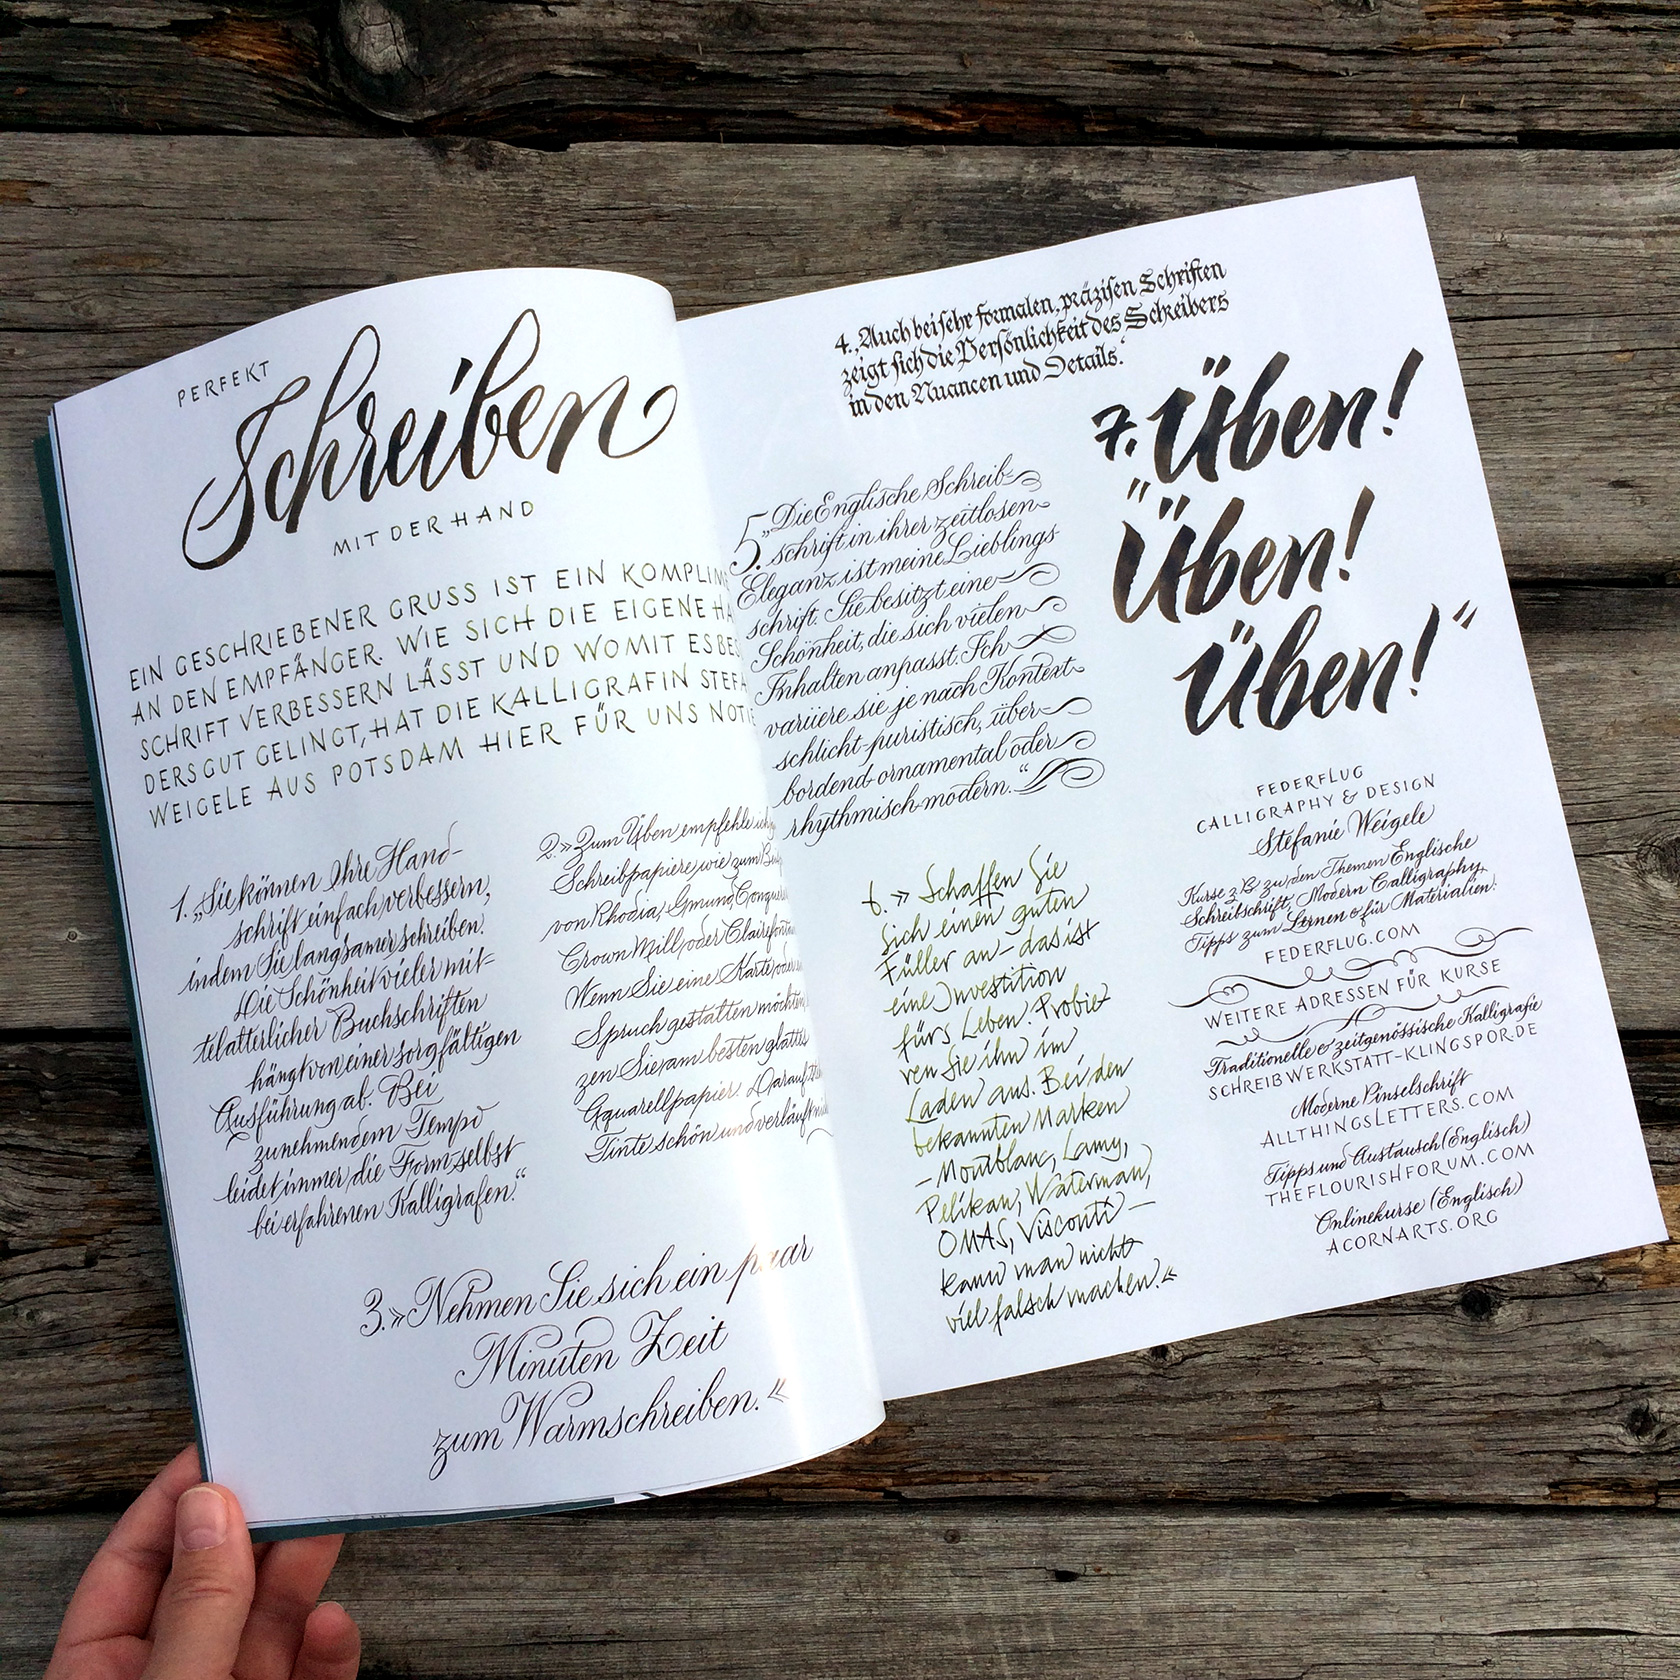 PERFEKT
Schreiben
MIT DER HAND
EIN GESCHRIEBENER GRUSS IST EIN KOMPLIM
AN DEN EMPFÄNGER. WIE SICH DIE EIGENE HA
SCHRIFT VERBESSERN LÄSST UND WOMIT ES BES
DERS GUT GELINGT, HAT DIE KALLIGRAFIN STEFA
WEIGELE AUS POTSDAM HIER FÜR UNS NOTIE
1. „Sie können Ihre Hand-
schrift einfach verbessern,
indem Sie langsamer schreiben.
Die Schönheit vieler mit-
telalterlicher Buchschriften
hängt von einer sorgfältigen
Ausführung ab. Bei
zunehmendem Tempo
leidet immer die Form, selbst
bei erfahrenen Kalligrafen.“
2. »Zum Üben empfehle ich
Schreibpapiere wie zum Bei
von Rhodia, Gmund, Conquer
Crown Mill oder Clairefontain
Wenn Sie eine Karte oder
Spruch gestalten möchten,
zen Sie am besten glattes
Aquarellpapier. Darauf
Tinte schön und verläuft
3. »Nehmen Sie sich ein paar
Minuten Zeit
zum Warmschreiben.«
4. ‚Auch bei sehr formalen, präzisen Schriften
zeigt sich die Persönlichkeit des Schreibers
in den Nuancen und Details.‘
5. „Die Englische Schreib-
schrift in ihrer zeitlosen
Eleganz ist meine Lieblings-
schrift. Sie besitzt eine
Schönheit, die sich vielen
Inhalten anpasst. Ich
variiere sie je nach Kontext
schlicht-puristisch, über-
bordend-ornamental oder
rhythmisch-modern.“
6. »Schaffen Sie
sich einen guten
Füller an – das ist
eine Investition
fürs Leben. Probie
ren Sie ihn im
Laden aus. Bei den
bekannten Marken
– Montblanc, Lamy,
Pelikan, Waterman,
OMAS, Visconti –
kann man nicht
viel falsch machen.«
7. Üben!
"Üben!
Üben!"
FEDERFLUG
CALLIGRAPHY & DESIGN
Stefanie Weigele
Kurse z.B. zu den Themen Englische
Schreibschrift, Modern Calligraphy.
Tipps zum Lernen & für Materialien:
FEDERFLUG.COM
WEITERE ADRESSEN FÜR KURSE
Traditionelle & zeitgenössische Kalligrafie
SCHREIBWERKSTATT-KLINGSPOR.DE
Moderne Pinselschrift
ALLTHINGSLETTERS.COM
Tipps und Austausch (Englisch)
THEFLOURISHFORUM.COM
Onlinekurse (Englisch)
ACORNARTS.ORG